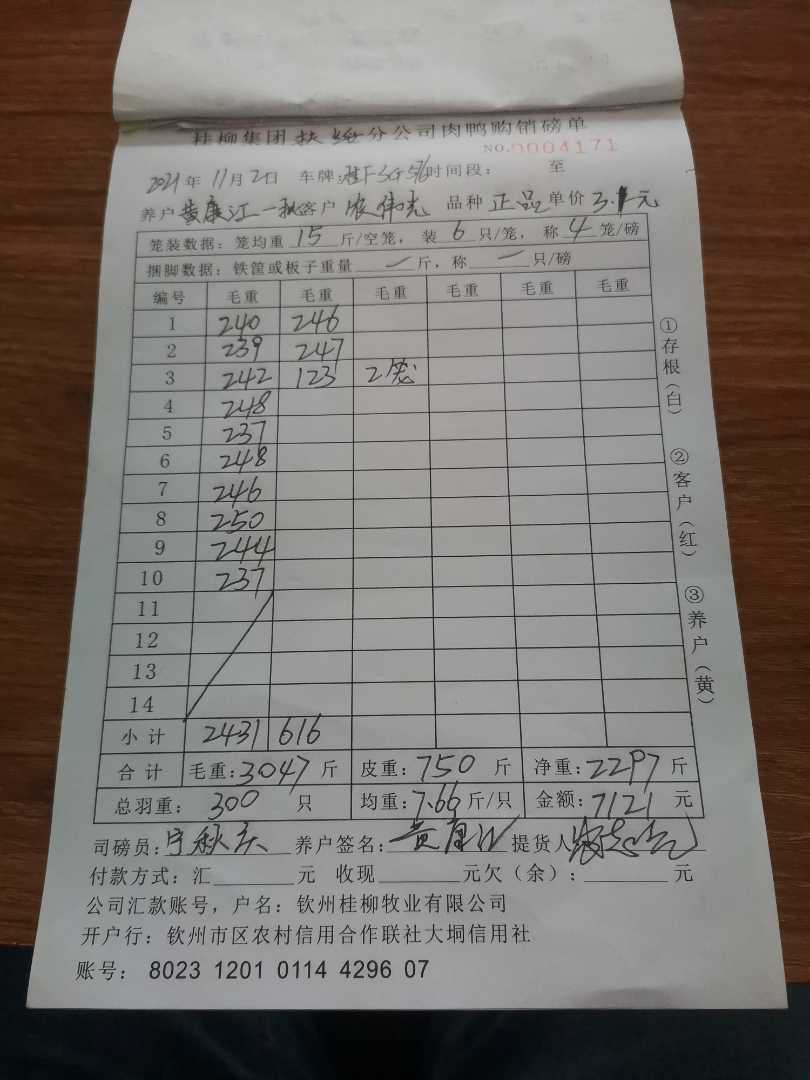 桂柳集团扶绥分公司肉鸭购销磅单
NO.0004171
2021年11月2日 车牌: 时间段: 至
养户 黄康江一批 客户 农伟志 品种 正品 单价 3.1元
笼装数据: 笼均重 15 斤/空笼, 装 6 只/笼, 称 4 笼/磅
捆脚数据: 铁筐或板子重量 — 斤, 称 — 只/磅
编号 毛重 毛重 毛重 毛重 毛重 毛重
1 240 246
2 239 247
3 242 123 2笼
4 248
5 237
6 248
7 246
8 250
9 244
10 237
11
12
13
14
小计 2431 616
合计 毛重:3047斤 皮重:750斤 净重:2297斤
总羽重: 300 只 均重:7.66斤/只 金额:7121元
司磅员: 宁秋 养户签名: 黄康江 提货人
付款方式: 汇 元 收现 元欠(余): 元
公司汇款账号, 户名: 钦州桂柳牧业有限公司
开户行: 钦州市区农村信用合作联社大垌信用社
账号: 8023 1201 0114 4296 07
①存根(白)
②客户(红)
③养户(黄)